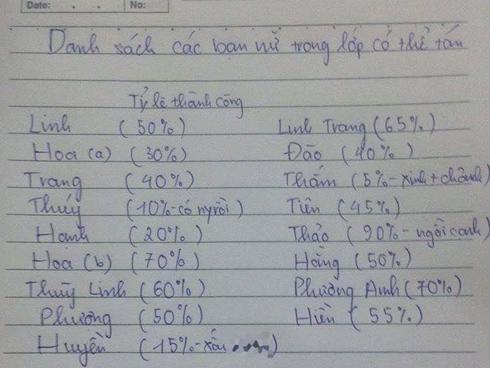 Date: . . No:
Danh sách các bạn nữ trong lớp có thể tán
Tỷ lệ thành công
Linh (50%) Linh Trang (65%)
Hoa (a) (30%) Đào (40%)
Trang (40%) Thắm (5%-xinh+chảnh)
Thúy (10%-có ny rồi) Tiên (45%)
Hạnh (20%) Thảo (90%-ngồi cạnh)
Hoa (b) (70%) Hằng (50%)
Thùy Linh (60%) Phương Anh (70%)
Phượng (50%) Hiền (55%)
Huyền (15%-xấu )